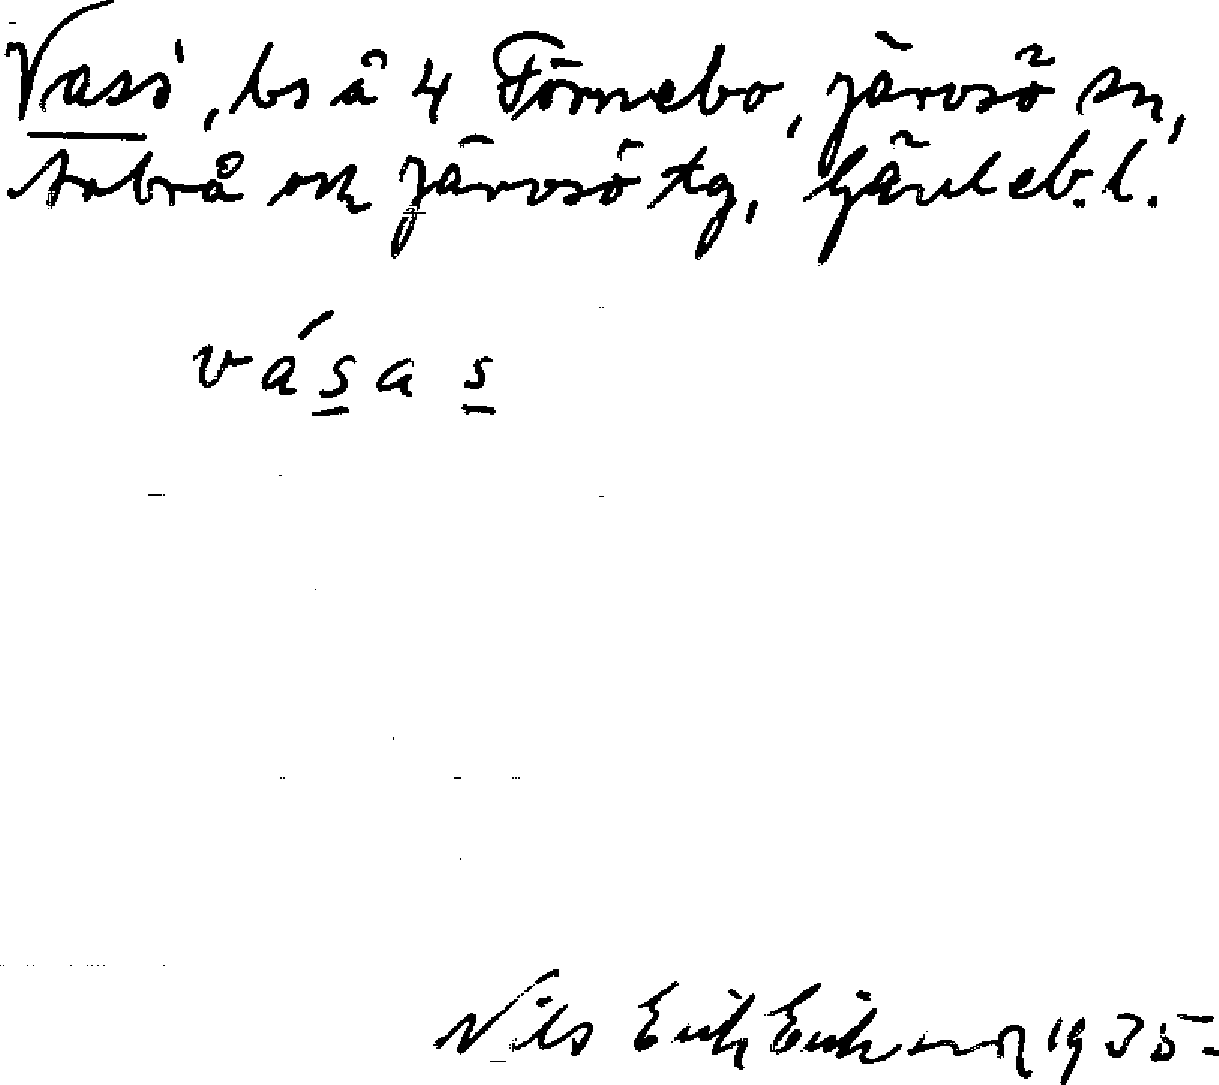 Vass, bs å 4 Förnebo, Järvsö sn,
Arbrå och Järvsö tg, Gävleb. l.
vásas
Nils Erik Eriksson 1935.